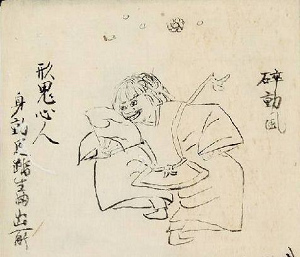 碎動風
形鬼心人
身動足踏生曲出所